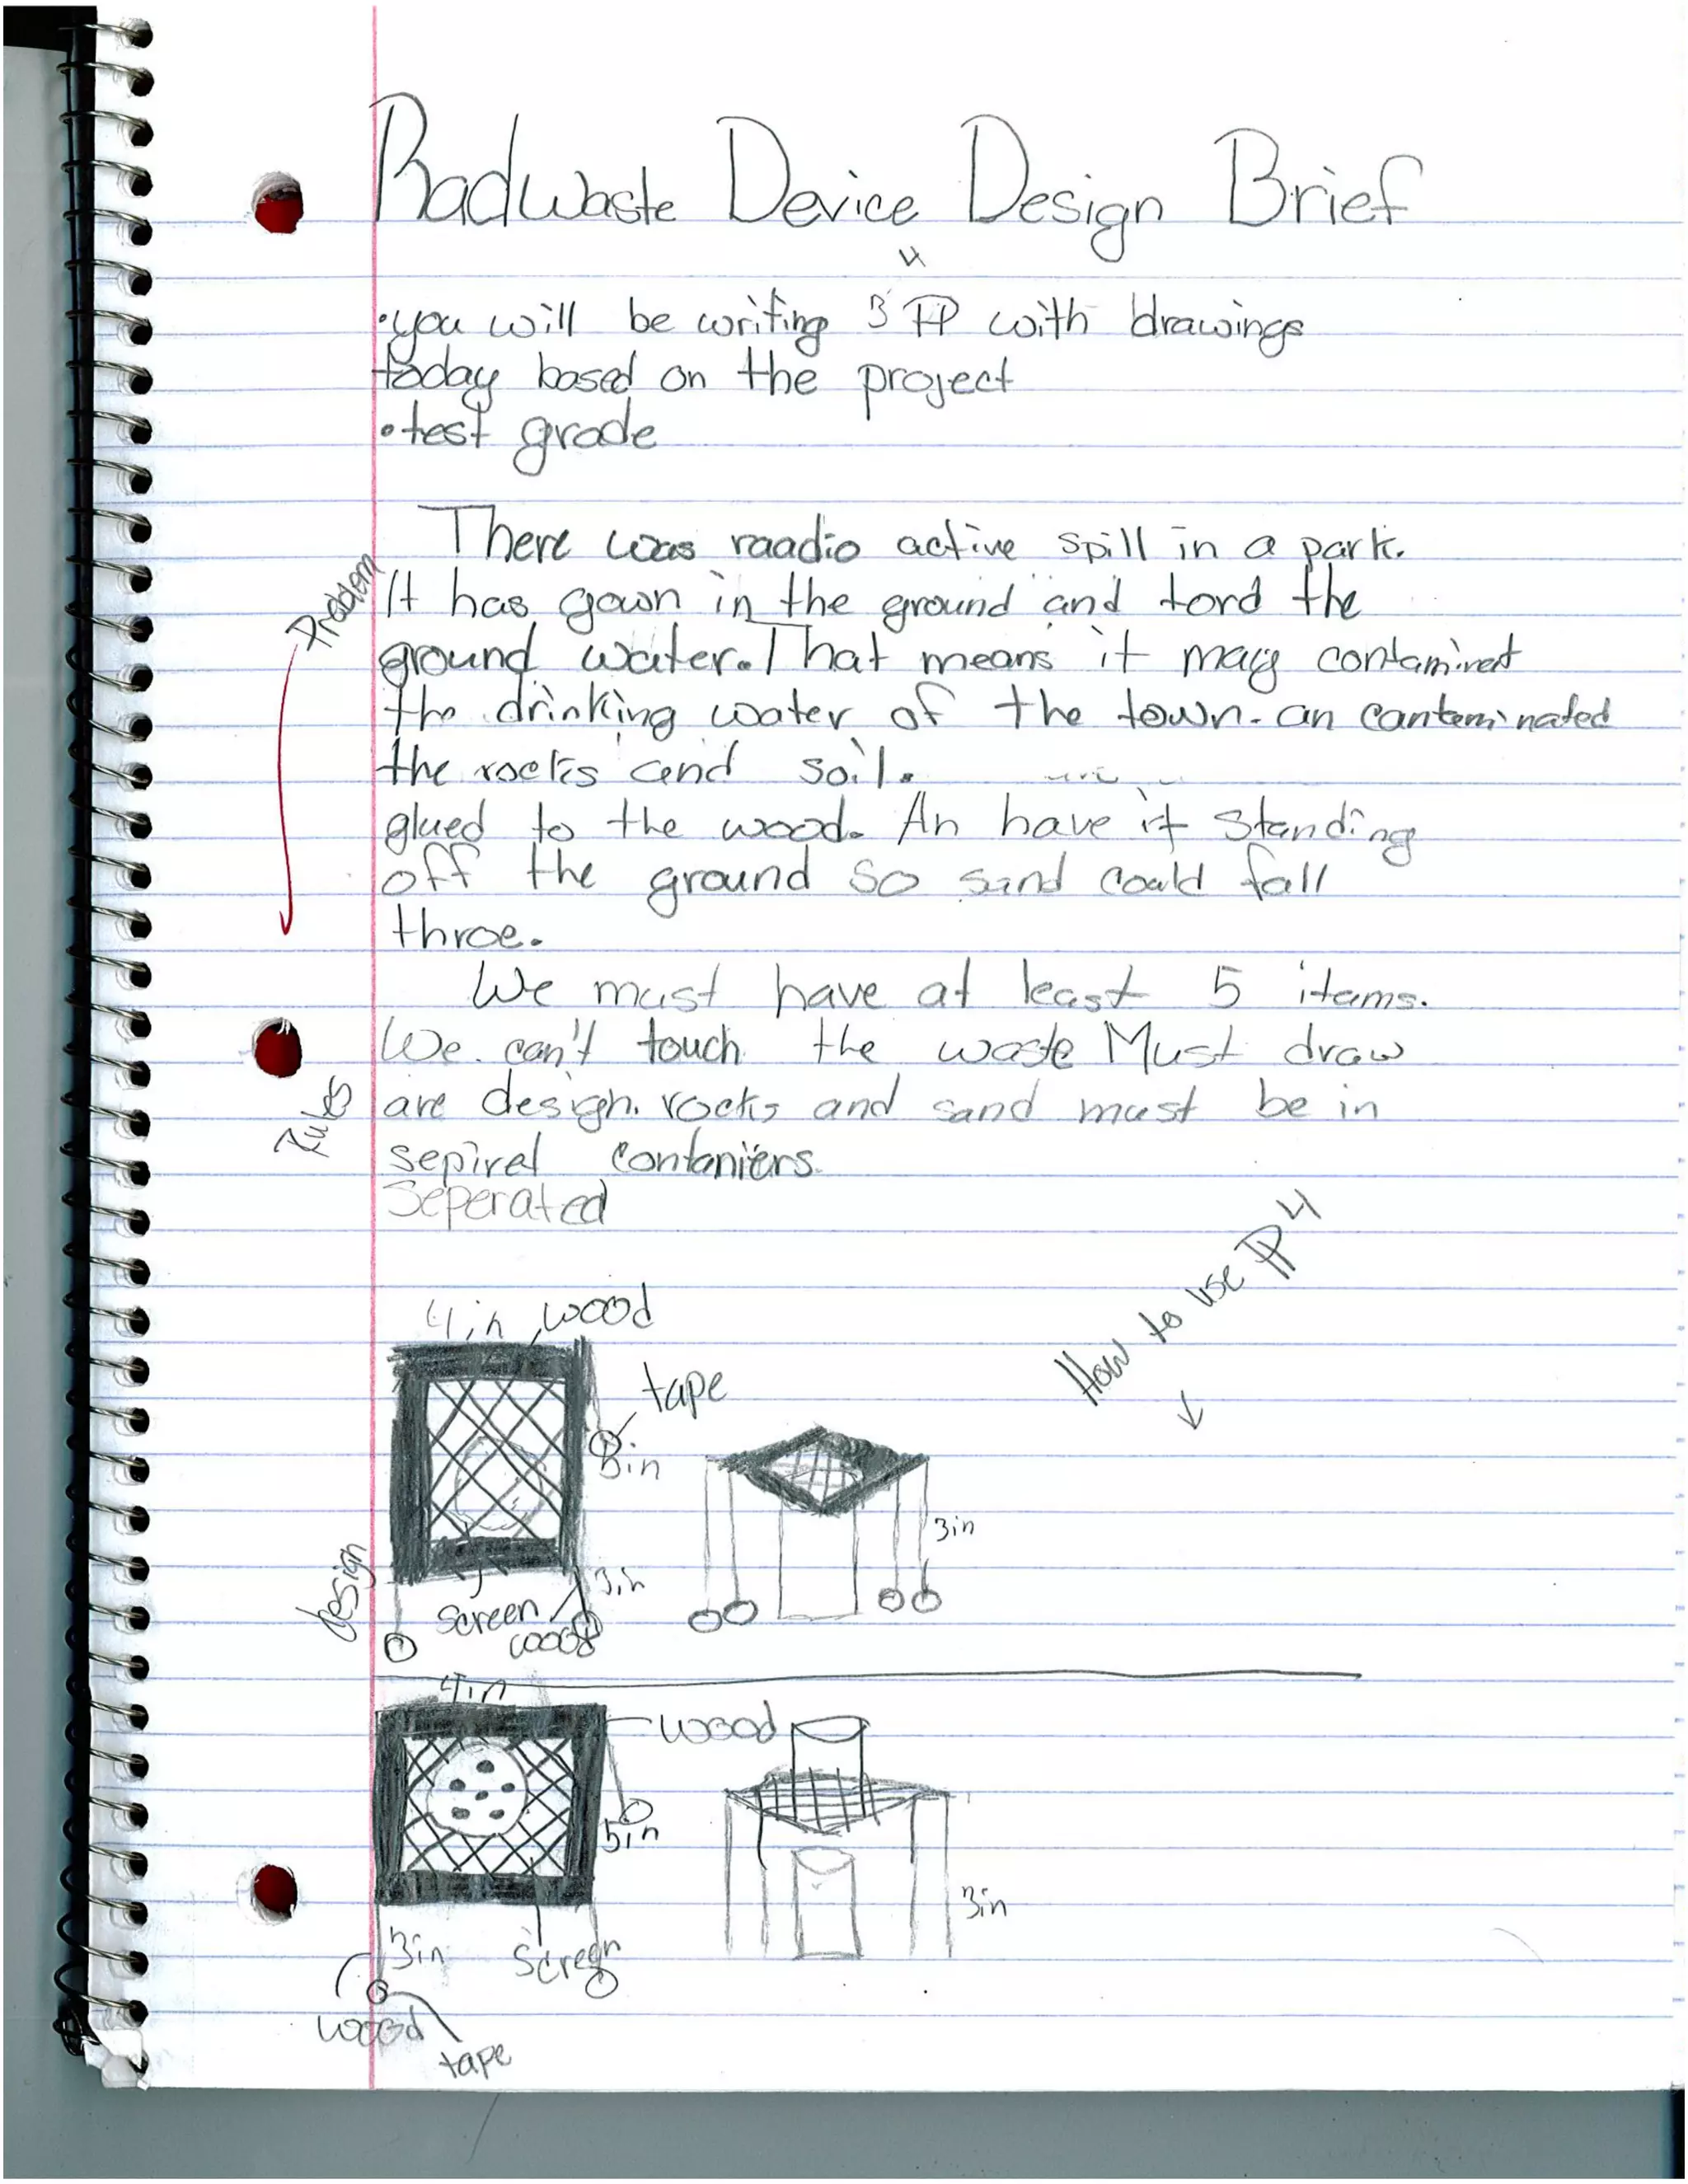 Radwaste Device Design Brief
4
•you will be writing 3 PP with drawings
today based on the project
•test grade
Problem
There was raadio active spill in a park.
It has gown in the ground and tord the
ground water. That means it may contaminet
the drinking water of the town. an canteminated
the rocks and soil.
glued to the wood. An have it standing
off the ground so sand could fall
throe.
We must have at least 5 items.
We can't touch the waste Must draw
Rules
are design. rocks and sand must be in
sepirel contaniers.
Seperated
How to use PP 4
4in wood
tape
3in
3in
3in
screen
wood
design
4in
wood
5in
3in
3in
Screen
wood
tape